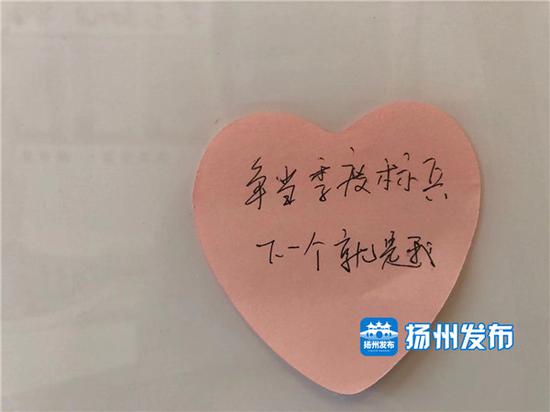 争当季度标兵
下一个就是我
扬州发布
扬州发布